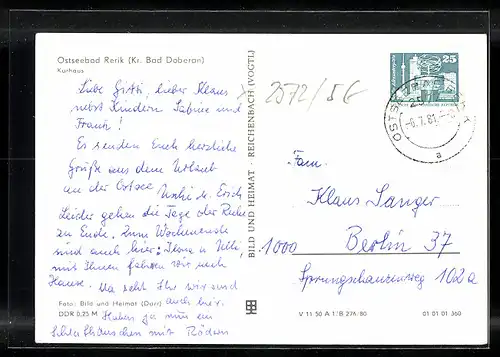 Ostseebad Rerik (Kr. Bad Doberan)
Kurhaus
Liebe Gitti, lieber Klaus
nebst Kindern Sabine und
Frank!
Es senden Euch herzliche
Grüße aus dem Urlaub
an der Ostsee Uschi u. Erich
Leider gehen die Tage der Ruhe
zu Ende. Zum Wochenende
sind auch hier: Ilona u. Willi
mit Ihnen fahren wir nach
Hause. wir sind
auch hier.
Foto: Bild und Heimat (Darr)
DDR 0,25 M Haben ja nun ein
mit Rädern
BILD UND HEIMAT · REICHENBACH (VOGTL)
2572/5G
25
OSTSEEBAD
-8.7.81
a
Fam.
Klaus Sanger
1000 Berlin 37
Sprungschanzenweg 102a
V 11 50 A 1/B 276/80 01 01 01 360